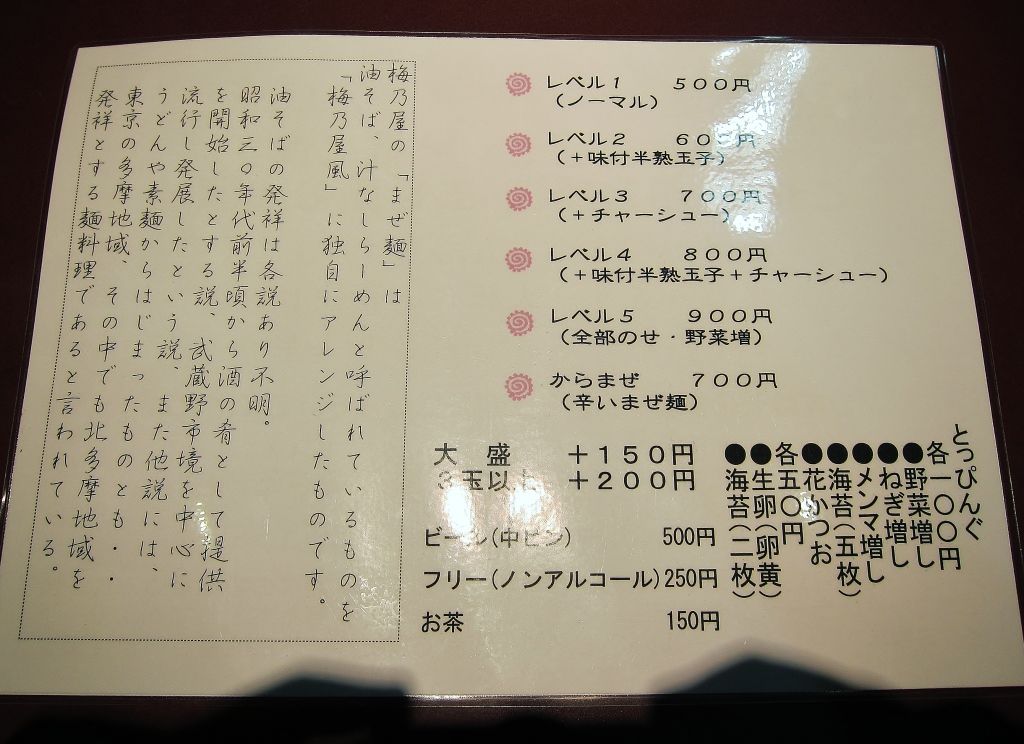 レベル１　５００円
（ノーマル）
レベル２　６００円
（＋味付半熟玉子）
レベル３　７００円
（＋チャーシュー）
レベル４　８００円
（＋味付半熟玉子＋チャーシュー）
レベル５　９００円
（全部のせ・野菜増）
からまぜ　７００円
（辛いまぜ麺）
大　盛　＋１５０円
３玉以上　＋２００円
ビール(中ビン)　500円
フリー(ノンアルコール)250円
お茶　150円
とっぴんぐ
各一〇〇円
●野菜増し
●ねぎ増し
●メンマ増し
●海苔（五枚）
●花かつお
各五〇円
●生卵（卵黄）
●海苔（二枚）
梅乃屋の「まぜ麺」は
油そば、汁なしらーめんと呼ばれているものを
「梅乃屋風」に独自にアレンジしたものです。
油そばの発祥は各説あり不明。
昭和三〇年代前半頃から酒の肴として提供
を開始したとする説、武蔵野市境を中心に
流行し発展したという説、また他説には、
うどんや素麺からはじまったものとも・・
東京の多摩地域、その中でも北多摩地域を
発祥とする麺料理であると言われている。